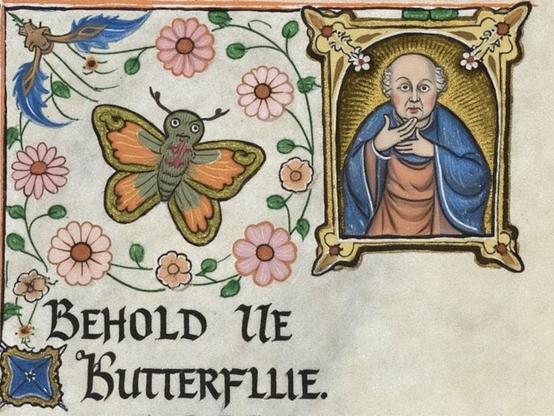 BEHOLD UE
BUTTERFLLIE.